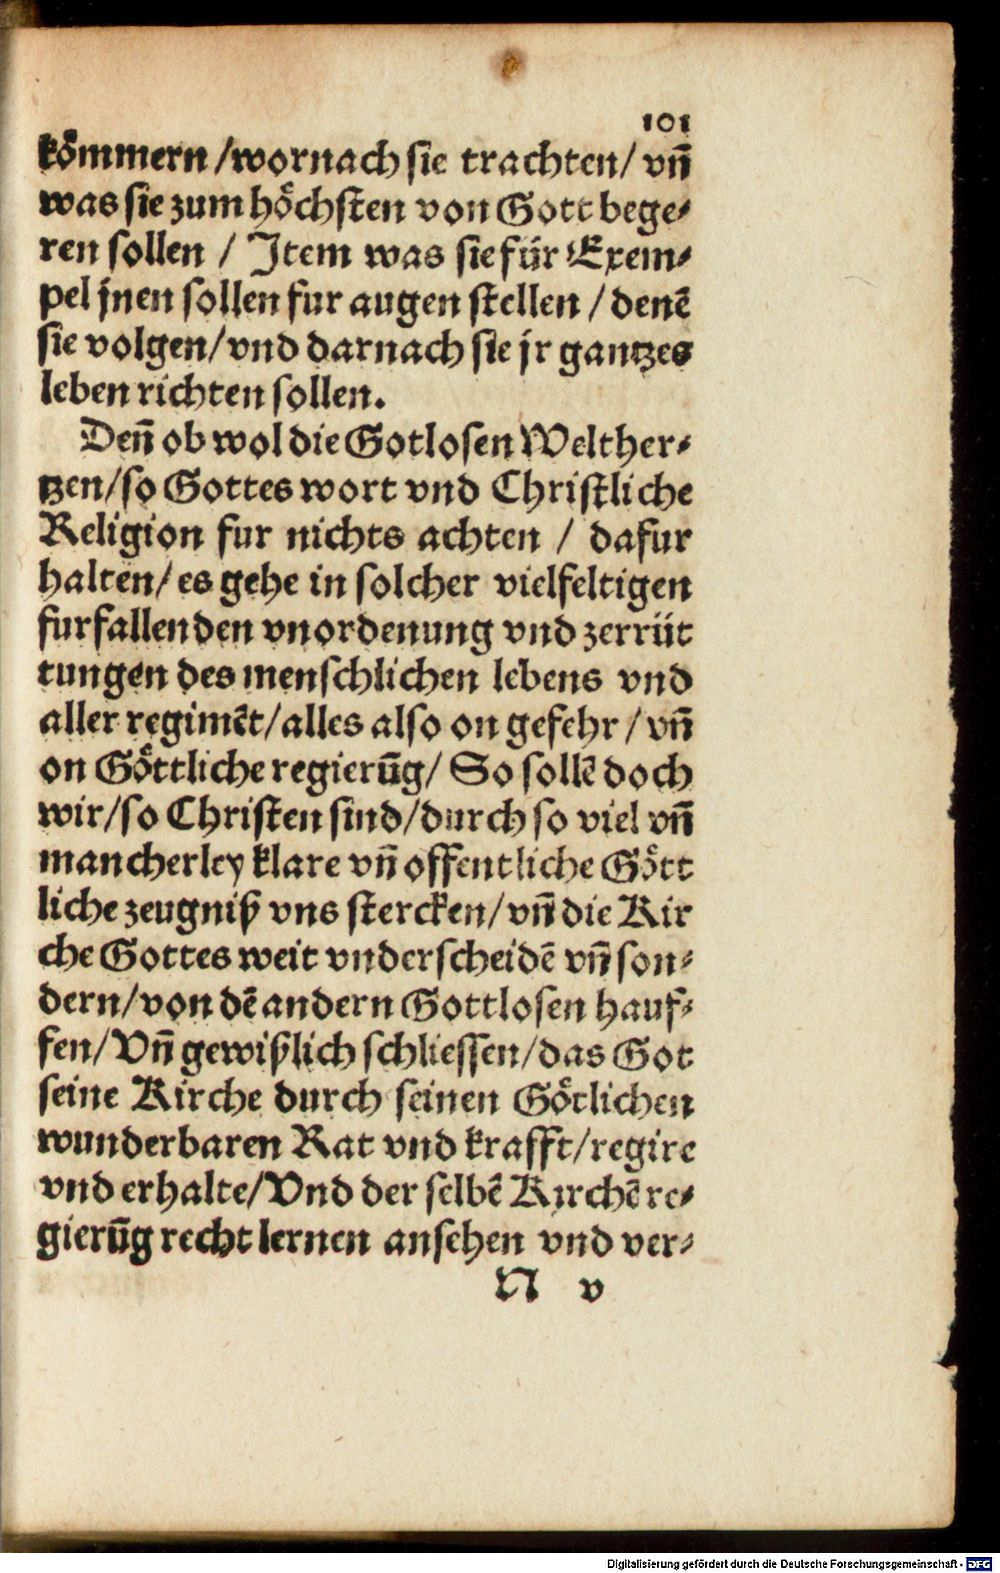 101
koͤmmern /wornach sie trachten/ vn̄
was sie zum hoͤchsten von Gott bege⸗
ren sollen / Item was sie für Exem⸗
pel jnen sollen fur augen stellen / denē
sie volgen/vnd darnach sie jr gantzes
leben richten sollen.
Den̄ ob wol die Gotlosen Welther⸗
tzen/so Gottes wort vnd Christliche
Religion fur nichts achten / dafur
halten/es gehe in solcher vielfeltigen
furfallenden vnordenung vnd zerrüt
tungen des menschlichen lebens vnd
aller regimēt/alles also on gefehr / vn̄
on Goͤttliche regierūg/ So sollē doch
wir/so Christen sind/durch so viel vn̄
mancherley klare vn̄ offentliche Goͤtt
liche zeugniß vns stercken/vn̄ die Kir
che Gottes weit vnderscheidē vn̄ son⸗
dern/von dē andern Gottlosen hauf⸗
fen/Vn̄ gewißlich schliessen/das Got
seine Kirche durch seinen Goͤtlichen
wunderbaren Rat vnd krafft/regire
vnd erhalte/Vnd der selbē Kirchē re⸗
gierūg recht lernen ansehen vnd ver⸗
N v
Digitalisierung gefördert durch die Deutsche Forschungsgemeinschaft - DFG